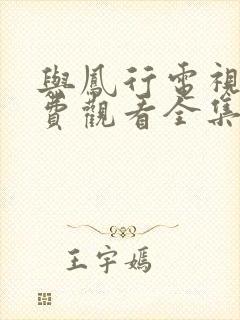 與鳳行電視
費觀看全集
王宇嫣